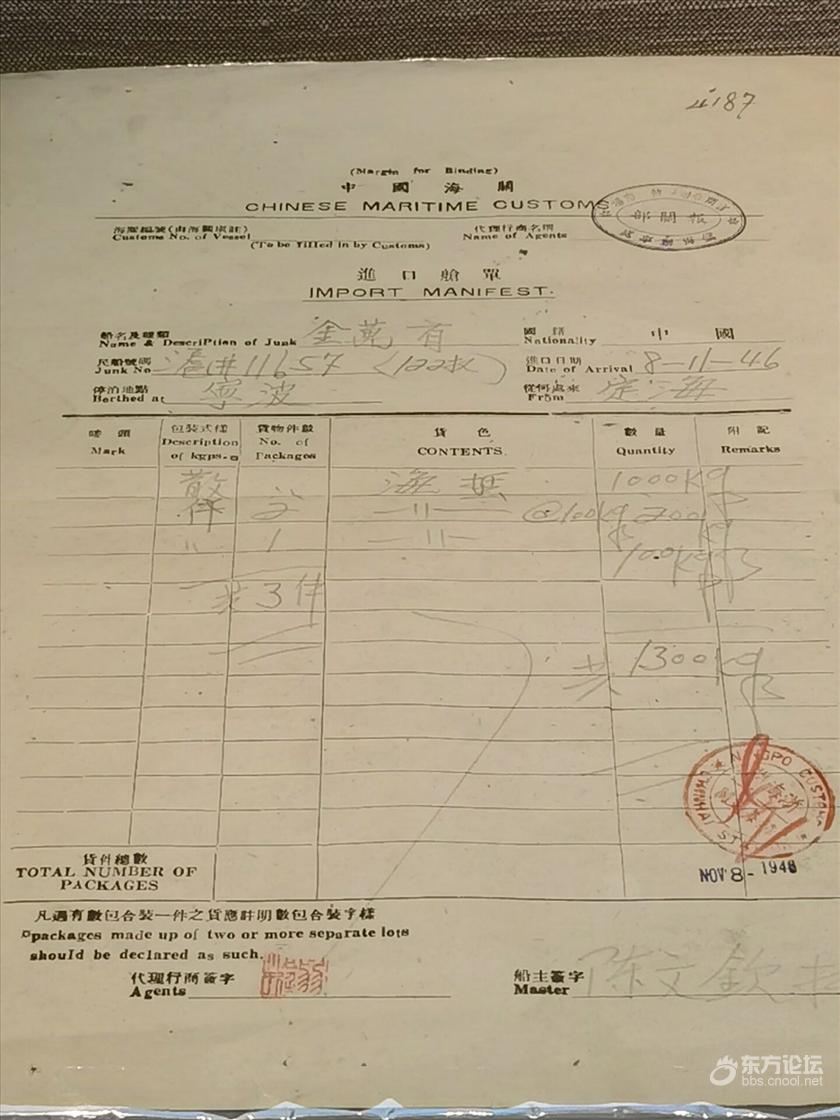 4187
(Margin for Binding)
中國海關
CHINESE MARITIME CUSTOMS
報關部
Customs No. of Vessel
(To be filled in by Customs)
代理行商名稱
Name of Agents
進口艙單
IMPORT MANIFEST.
船名及種類
Name & Description of Junk 金萬有
國籍
Nationality 中國
民船號碼
Junk No. 滬#11657 (122擔)
進口日期
Date of Arrival 8-11-46
停泊地點
Berthed at 寧波
從何處來
From 定海
嘜頭 包裝式樣 貨物件數 貨色 數量 附記
Mark Description of kgps. No. of Packages CONTENTS. Quantity Remarks
散 海蜇 1000Kg
件 2 〃 @100Kg 200Kg
〃 1 〃 100Kg
共3件
共 1300Kg
CHINHAI NINGPO CUSTOMS
NOV 8-1946
貨件總數
TOTAL NUMBER OF
PACKAGES
凡遇有數包合裝一件之貨應註明數包合裝字樣
packages made up of two or more separate lots
should be declared as such.
代理行商簽字
Agents
船主簽字
Master 陈文钦
东方论坛
bbs.cnool.net